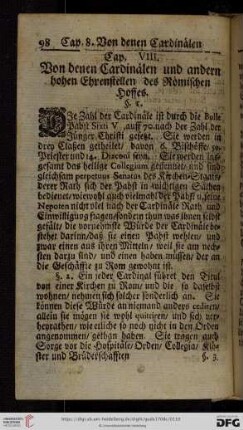 98 Cap. 8. Von denen Cardinälen
Cap. VIII.
Von denen Cardinälen und andern
hohen Ehrenstellen des Römischen
Hoffes.
§. 1.
DIe Zahl der Cardinäle ist durch die Bulle
Pabst Sixti V. auff 70. nach der Zahl der
Jünger Christi gesetzt. Sie werden in
drey Classen getheilet/ davon 6. Bischöffe 50.
Priester und 14. Diaconi seyn. Sie werden ins-
gesamt das heilige Collegium genennet/ und sind
gleichsam perpetuus Senatus des Kirchen-Staats/
derer Rath sich der Pabst in wichtigen Sachen
bedienet/ wiewohl auch vielmahl der Pabst u. seine
Nepoten nicht viel nach der Cardinäle Rath und
Einwilligung fragen/sondern thun was ihnen selbst
gefällt/ die vornehmste Würde der Cardinäle be-
stehet darinn/daß sie einen Pabst wehlen/ und
zwar einen aus ihren Mitteln/ weil sie am nech-
sten darzu sind/ und einen haben müssen/ der an
die Geschäffte zu Rom gewohnt ist.
§. 2. Ein jeder Cardinal führet den Titul
von einer Kirchen zu Rom/ und die so daselbst
wohnen/ nehmen sich solcher sonderlich an. Sie
können diese Würde an niemand anders
allein sie mögen sie wohl quittiren/ und sich ver-
heyrathen/ wie etliche so noch nicht in den Orden
angenommen/ gethan haben. Sie tragen auch
Sorge vor die Hospitäle/ Orden/ Collegia/ Klö-
ster und Brüderschafften §. 3.